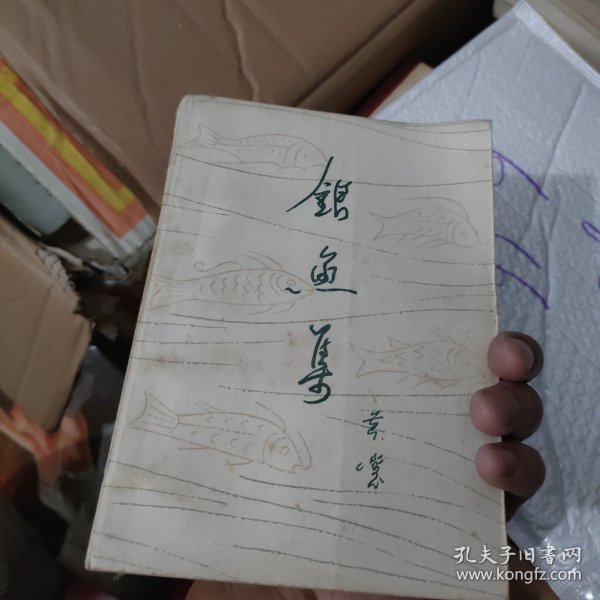 銀
魚
集
黄
裳
孔夫子旧书网
www.kongfz.com